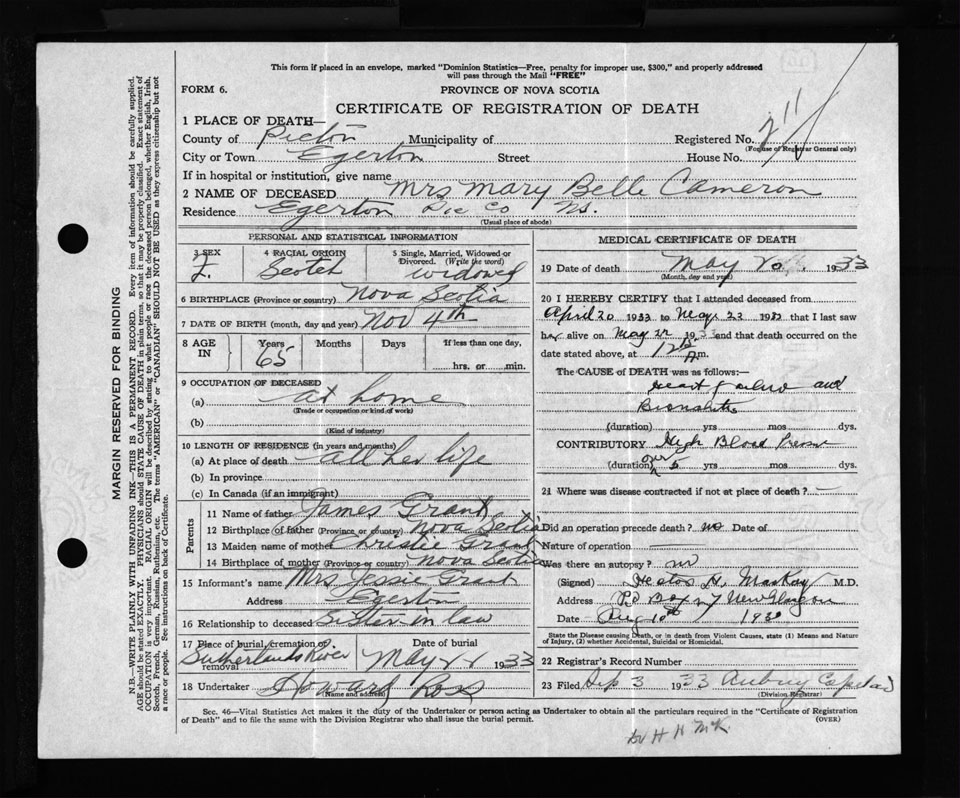 This form if placed in an envelope, marked "Dominion Statistics—Free, penalty for improper use, $300," and properly addressed
will pass through the Mail "FREE"
FORM 6.
PROVINCE OF NOVA SCOTIA
CERTIFICATE OF REGISTRATION OF DEATH
1 PLACE OF DEATH—
County of Pictou Municipality of Registered No. 211
(For use of Registrar General only)
City or Town Egerton Street House No.
If in hospital or institution, give name
2 NAME OF DECEASED Mrs Mary Belle Cameron
Residence Egerton Pic Co Ns.
(Usual place of abode)
PERSONAL AND STATISTICAL INFORMATION
3 SEX 4 RACIAL ORIGIN 5 Single, Married, Widowed or
Divorced. (Write the word)
F. Scotch widowed
6 BIRTHPLACE (Province or country) Nova Scotia
7 DATE OF BIRTH (month, day and year) Nov 4th
8 AGE IN Years Months Days If less than one day,
65 hrs. or min.
9 OCCUPATION OF DECEASED
(a) at home
(Trade or occupation or kind of work)
(b)
(Kind of industry)
10 LENGTH OF RESIDENCE (in years and months)
(a) At place of death all her life
(b) In province
(c) In Canada (if an immigrant)
Parents
11 Name of father James Grant
12 Birthplace of father (Province or country) Nova Scotia
13 Maiden name of mother Christie Grant
14 Birthplace of mother (Province or country) Nova Scotia
15 Informant's name Mrs Jessie Grant
Address Egerton
16 Relationship to deceased Sister in law
17 Place of burial, cremation or removal Date of burial
Sutherlands River May 1933
18 Undertaker Howard Ross
(Name and address)
MEDICAL CERTIFICATE OF DEATH
19 Date of death May 1933
(Month, day and year)
20 I HEREBY CERTIFY that I attended deceased from
April 20 1933 to May 22 1933 that I last saw
her alive on May 22 1933 and that death occurred on the
date stated above, at 12 m.
The CAUSE OF DEATH was as follows:—
Heart failure and
Bronchitis
(duration) yrs mos dys.
CONTRIBUTORY High Blood Pressure
(duration) over 5 yrs mos dys.
21 Where was disease contracted if not at place of death? —
Did an operation precede death? no Date of
Nature of operation
Was there an autopsy? no
(Signed) H. MacKay M.D.
Address PO Box 7 New Glasgow
Date Aug 10th 193
State the Disease causing Death, or in death from Violent Causes, state (1) Means and Nature
of Injury, (2) whether Accidental, Suicidal or Homicidal.
22 Registrar's Record Number
23 Filed Sep 3 1933 Aubrey
(Division Registrar)
Sec. 46—Vital Statistics Act makes it the duty of the Undertaker or person acting as Undertaker to obtain all the particulars required in the "Certificate of Registration
of Death" and to file the same with the Division Registrar who shall issue the burial permit.
(OVER)
Dr H H McK
MARGIN RESERVED FOR BINDING
N.B.—WRITE PLAINLY WITH UNFADING INK—THIS IS A PERMANENT RECORD. Every item of information should be carefully supplied.
AGE should be stated EXACTLY. PHYSICIANS should STATE CAUSE OF DEATH in plain terms, so that it may be properly classified. Exact statement of
OCCUPATION is very important. RACIAL ORIGIN will be described by stating to what people or race the deceased person belonged, whether English, Irish,
Scotch, French, German, Russian, Ruthenian, etc. The terms "AMERICAN" or "CANADIAN" SHOULD NOT BE USED as they express citizenship but not
a race or people. See instructions on back of Certificate.